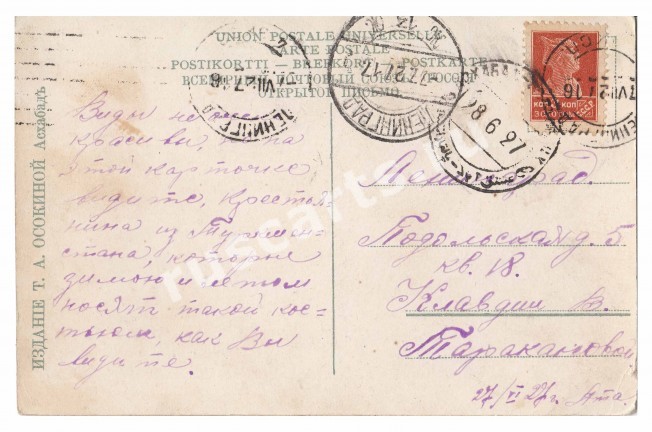 UNION POSTALE UNIVERSELLE
CARTE POSTALE
POSTIKORTTI - BREFKORT - POSTKARTE
ВСЕМІРНЫЙ ПОЧТОВЫЙ СОЮЗЪ РОССІЯ
ОТКРЫТОЕ ПИСЬМО
ЛЕНИНГРАД
28 6 27
ЛЕНИНГРАД
КОП КОП
ИЗДАНІЕ Т. А. ОСОКИНОЙ Асхабадъ
Виды не
красивы, но на
этой карточке
видите, крестья=
нина из Туркмен=
стана, которые
зимою и летом
носят такой кос=
тюм, как Вы
видите.
Ленинград.
Подольская д. 5
кв. 18.
Клавдии В.
Таракановой
27/VI 27г. Ата.
ruscarts.ru